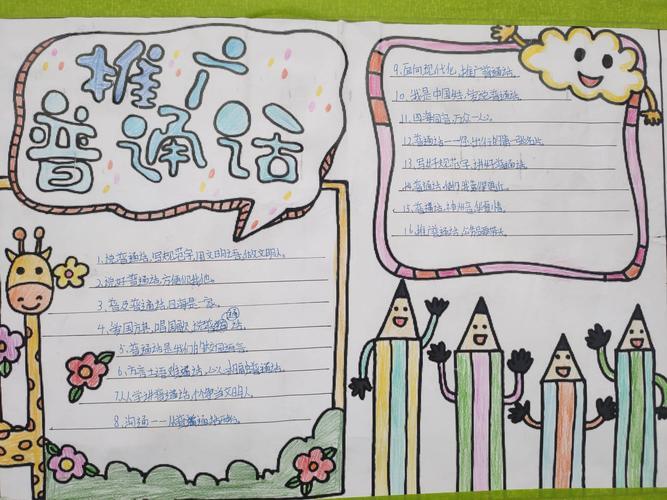 推广
普通话
1.说普通话,写规范字,用文明语,做文明人。
2.说好普通话,方便你我他。
3.普及普通话,四海是一家。
4.爱国旗,唱国歌,说普通话。
5.普通话是我们的校园语言。
6.方言土语难
7.人人学讲普通话,
当文明人。
8.沟通——从普通话开始。
9.面向现代化,推广普通话。
10.我是中国娃,爱说普通话。
11.四海同音,万众一心。
12.普通话——你
第一张名片。
13.写好规范字,讲好普通话。
14.普通话,
15.普通话,神州音,华夏情。
16.推广普通话,